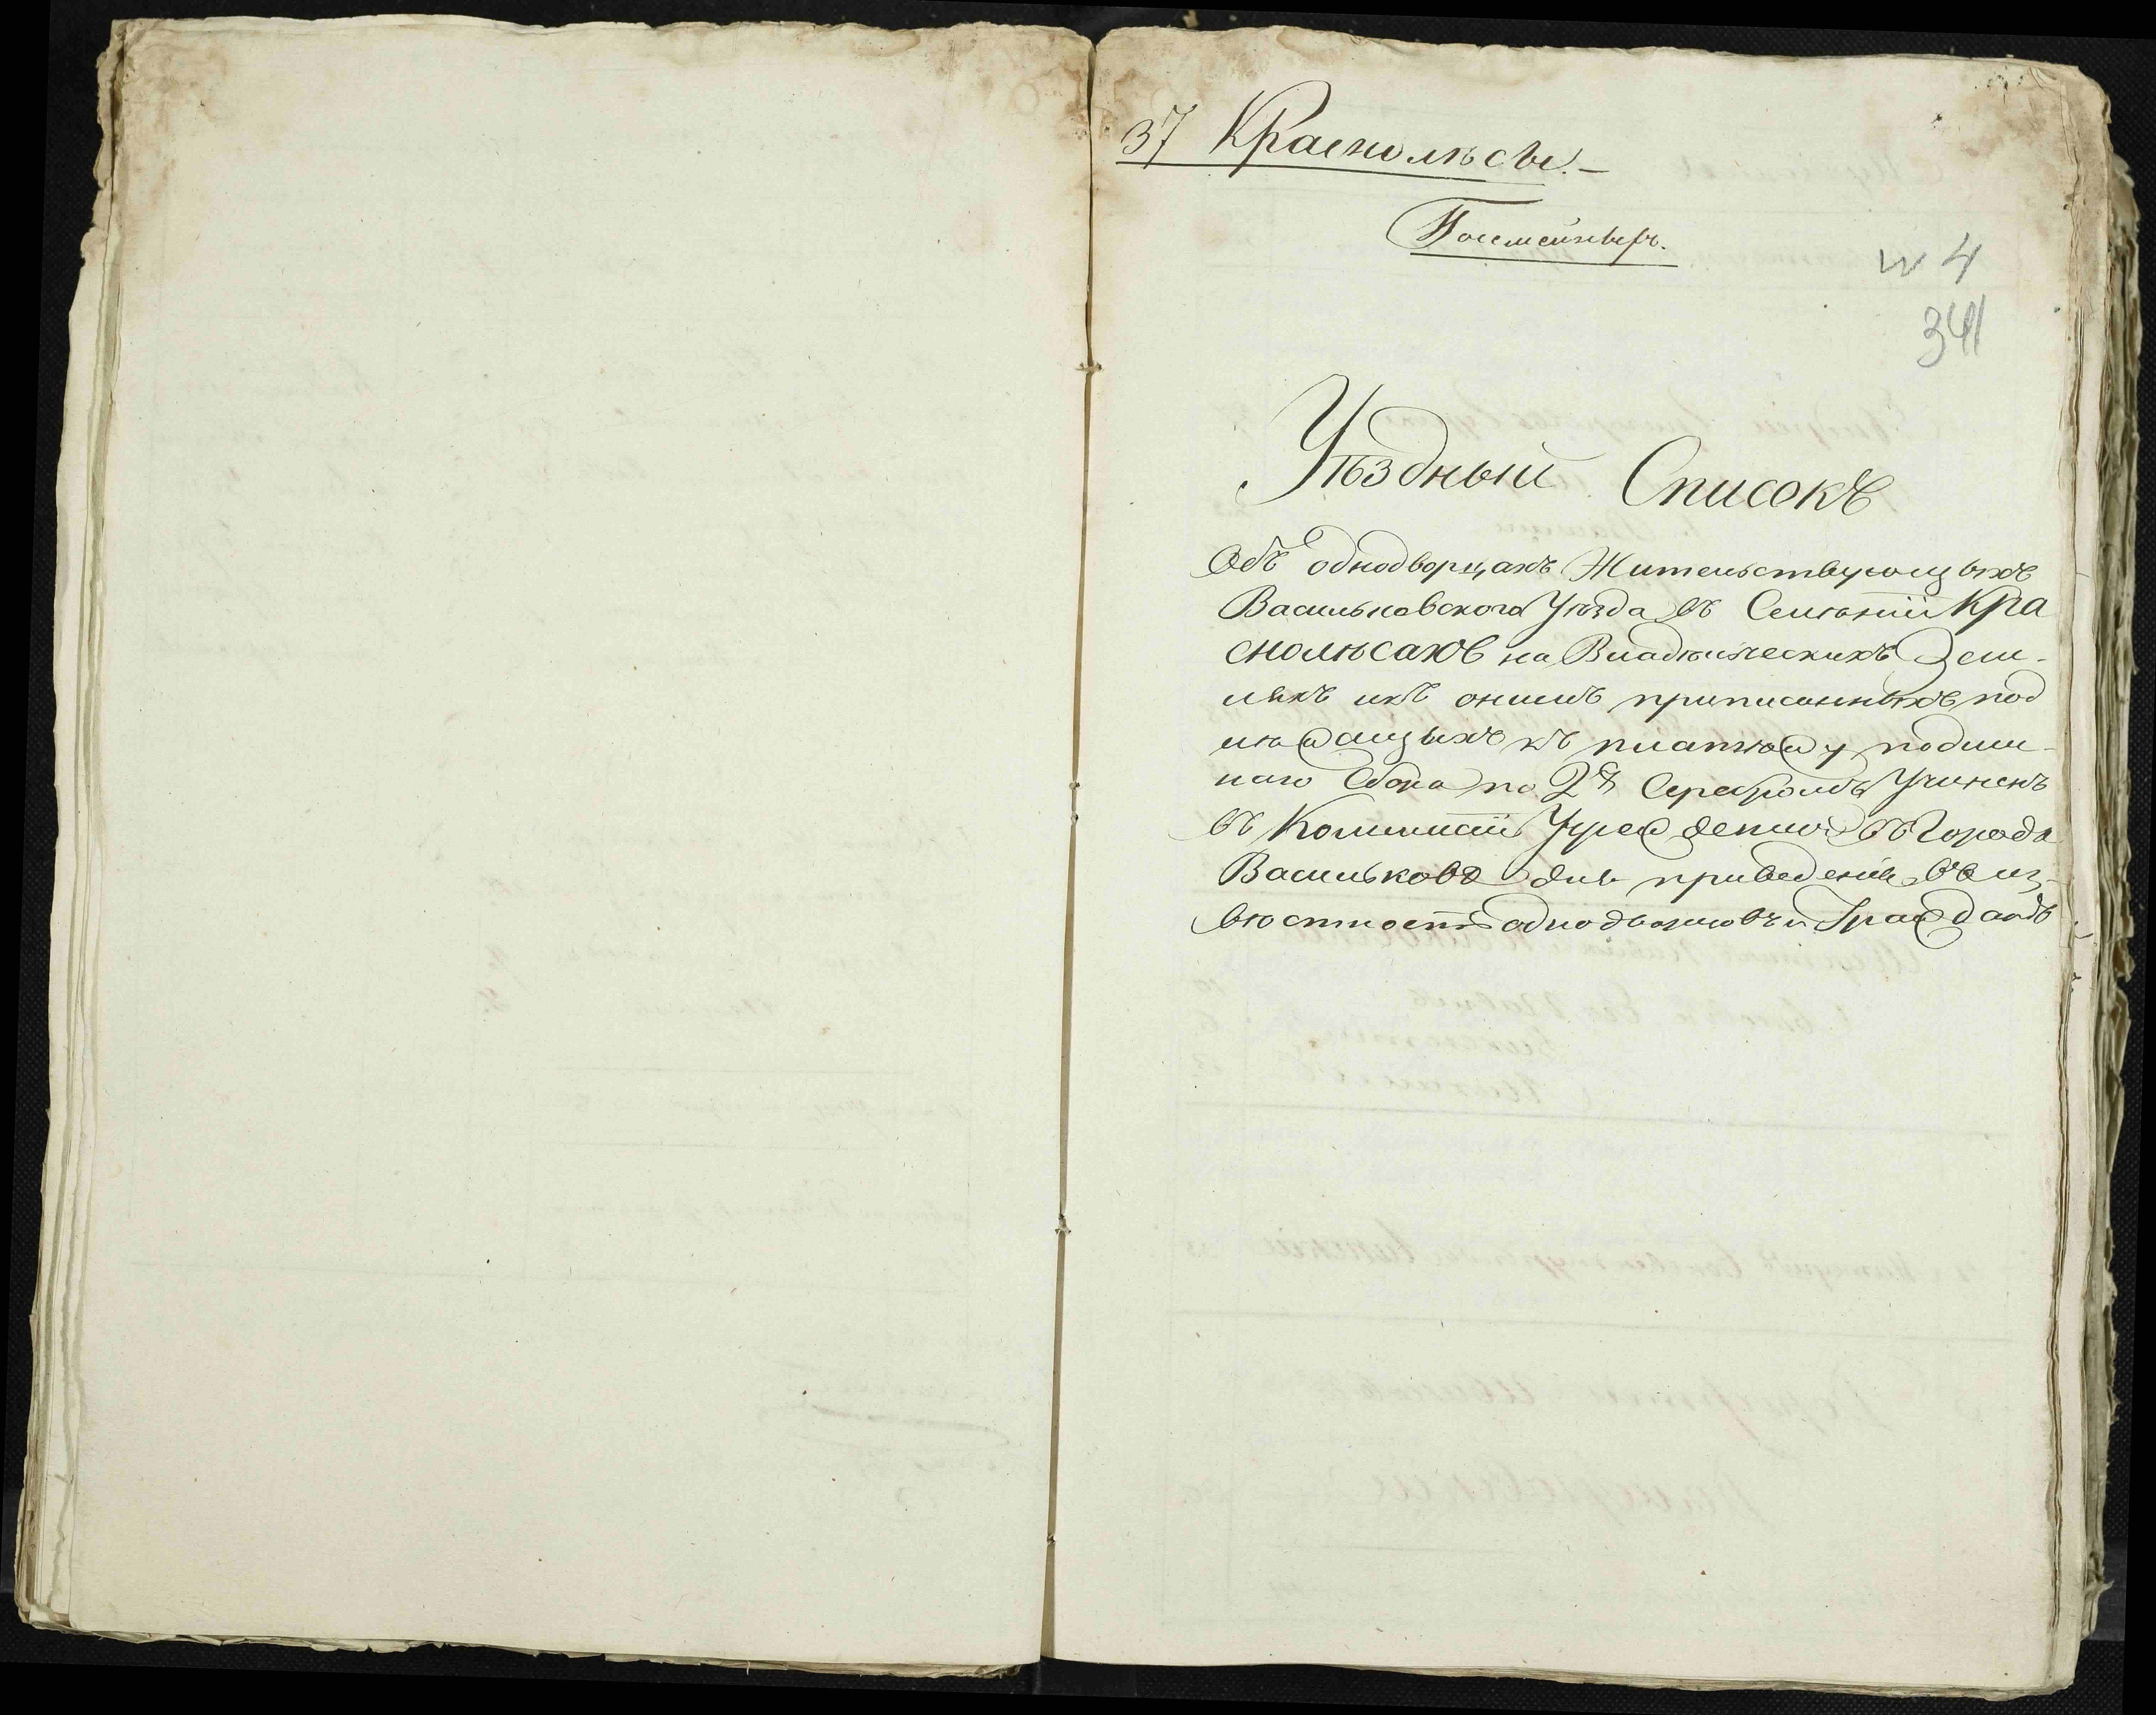 37 Краснолѣсы. –
Уѣздный Списокъ
Объ однодворцахъ Жительствующыхъ
Васильковского Уѣзда въ Селѣніи Кра
снолѣсахъ на Владѣльческихъ Зем-
ляхъ икъ онимъ приписанныхъ под
лѣжащыхъ къ платѣжу подым-
наго Сбора по 2 Серебромъ Учиненъ
въ Коммисіи Учрежденной въ Городѣ
Васильковѣ для приведенія въ из-
вѣстность однодворцовъ и Гражданъ